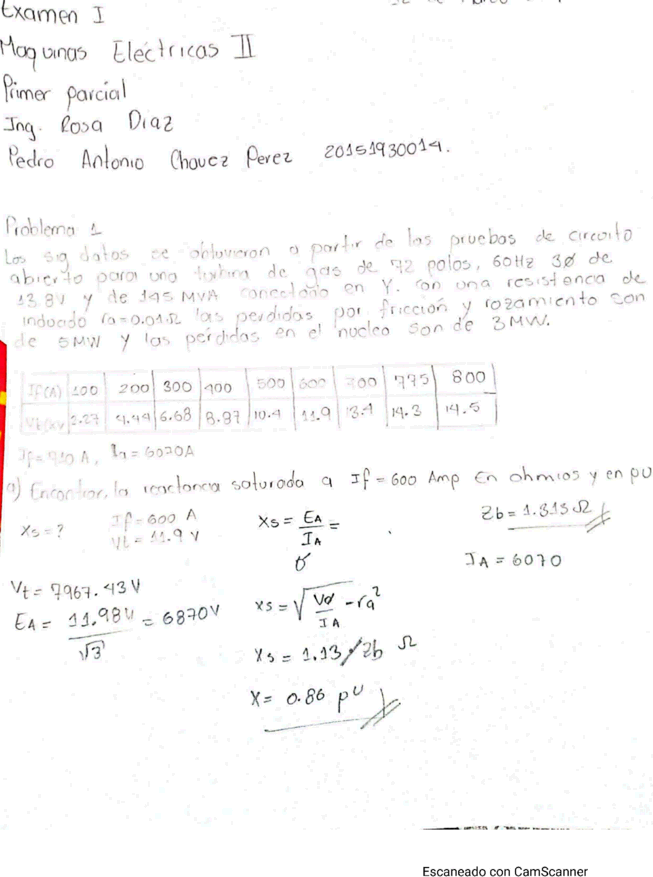 Examen I
Maquinas Eléctricas II
Primer parcial
Ing. Rosa Diaz
Pedro Antonio Chavez Perez 20151930014.
Problema 1
Los sig datos se obtuvieron a partir de las pruebas de circuito
abierto para una turbina de gas de 72 polos, 60Hz 3ø de
13.8V y de 145 MVA conectado en Y. con una resistencia de
inducido ra=0.01Ω las perdidas por fricción y rozamiento son
de 5MW y las perdidas en el nucleo son de 3MW.
If(A) 100 200 300 400 500 600 700 775 800
Vt(kv) 2.27 4.44 6.68 8.87 10.4 11.9 13.4 14.3 14.5
If=910 A, Ia=6070A
a) Encontrar, la reactancia saturada a If=600 Amp En ohmios y en pu
Xs=? If=600 A Xs = EA/IA = Zb=1.313Ω
Vt=11.9 V
IA=6070
Vt= 7967.43V
EA= 11.98V/√3 = 6870V
xs=√Vø/IA - ra²
Xs= 1.13/Zb Ω
X= 0.86 pu
Escaneado con CamScanner